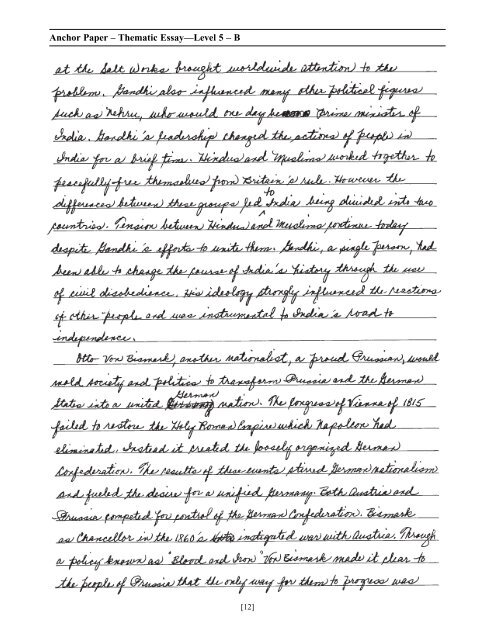 Anchor Paper – Thematic Essay—Level 5 – B
at the Salt Works brought worldwide attention to the
problem. Gandhi also influenced many other political figures
such as Nehru, who would one day become prime minister of
India. Gandhi's leadership changed the actions of people in
India for a brief time. Hindus and Muslims worked together to
peacefully free themselves from Britain's rule. However the
differences between these groups led to India being divided into two
countries. Tension between Hindus and Muslims continue today
despite Gandhi's efforts to unite them. Gandhi, a single person, had
been able to change the course of India's history through the use
of civil disobedience. His ideology strongly influenced the reactions
of other people and was instrumental to India's road to
independence.
Otto Von Bismark, another nationalist, a proud Prussian, would
mold society and politics to transform Prussia and the German
States into a united German nation. The Congress of Vienna of 1815
failed to restore the Holy Roman Empire which Napoleon had
eliminated. Instead it created the loosely organized German
Confederation. The results of these events stirred German nationalism
and fueled the desire for a unified Germany. Both Austria and
Prussia competed for control of the German Confederation. Bismark
as Chancellor in the 1860's instigated war with Austria. Through
a policy known as "Blood and Iron" Von Bismark made it clear to
the people of Prussia that the only way for them to progress was
[12]